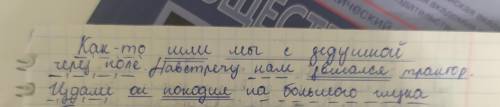 Как-то шли мы с дедушкой
через поле Навстречу нам трактор.
Издали он походил на большого жука